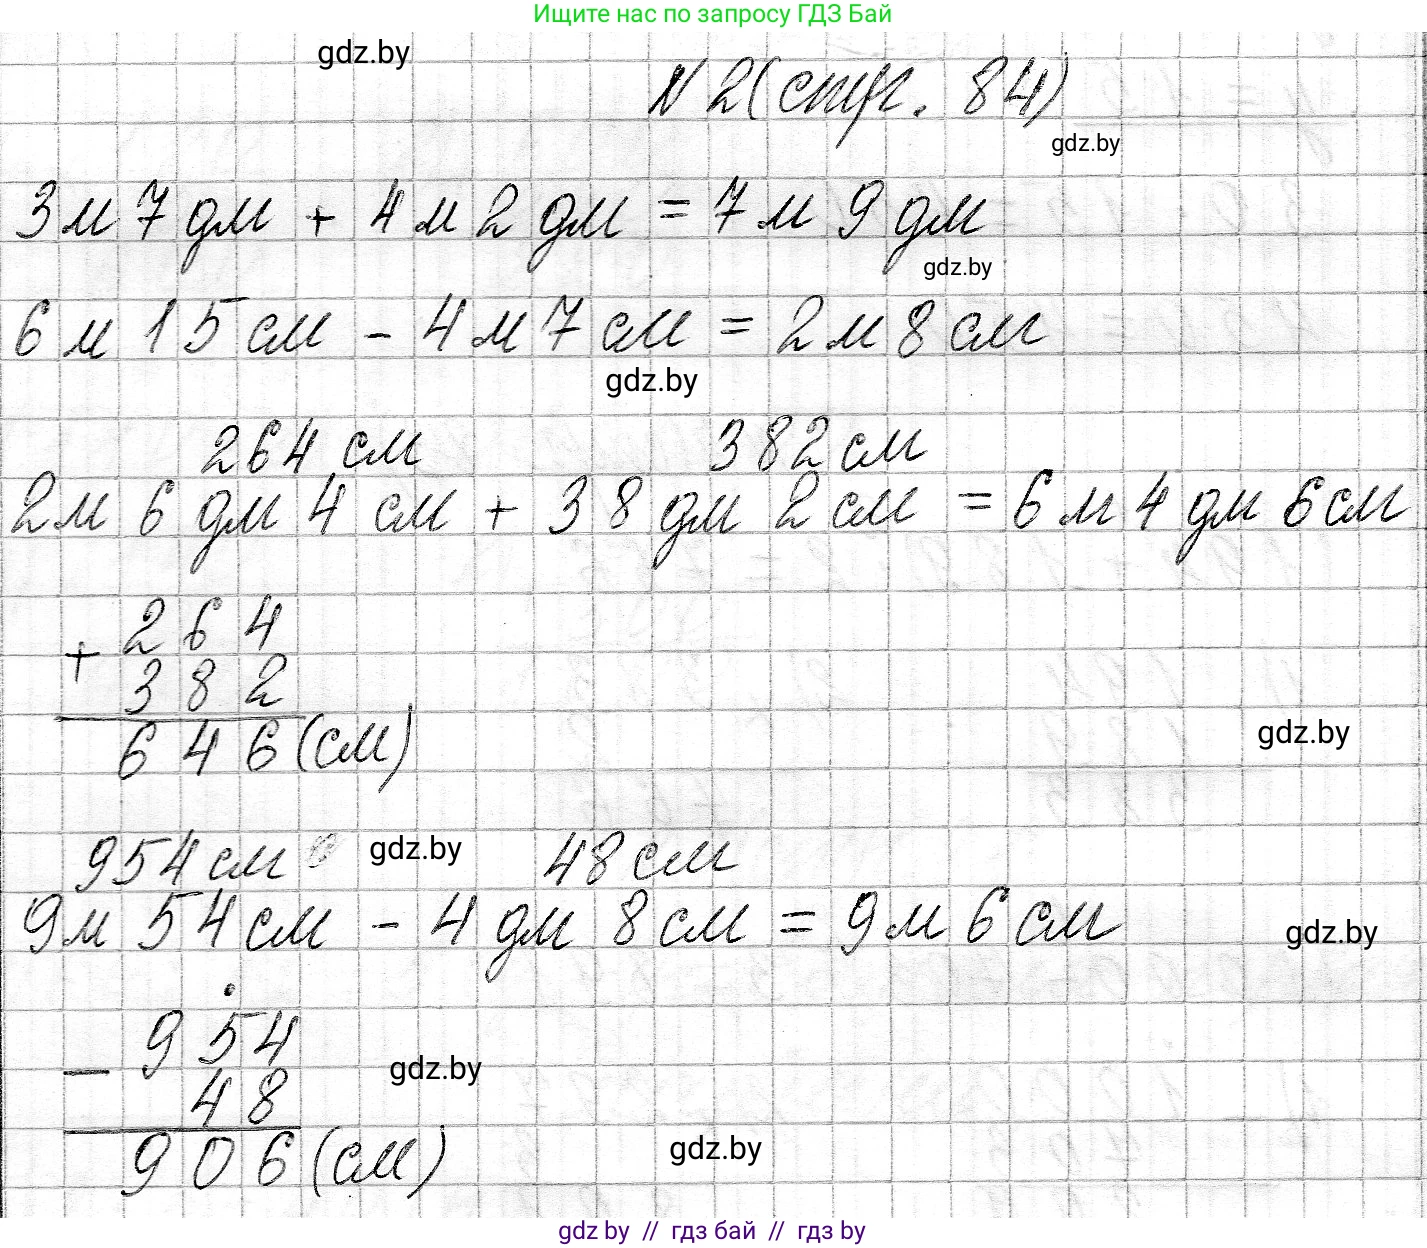 Ищите нас по запросу ГДЗ Бай
gdz.by
N 2 (стр. 84)
gdz.by
3 м 7 дм + 4 м 2 дм = 7 м 9 дм
gdz.by
6 м 15 см - 4 м 7 см = 2 м 8 см
gdz.by
264 см 382 см
2 м 6 дм 4 см + 38 дм 2 см = 6 м 4 дм 6 см
+ 264
382
646 (см)
gdz.by
954 см gdz.by 48 см
9 м 54 см - 4 дм 8 см = 9 м 6 см
gdz.by
- 954
48
gdz.by
906 (см)
gdz.by
gdz by // гдз бай // гдз by